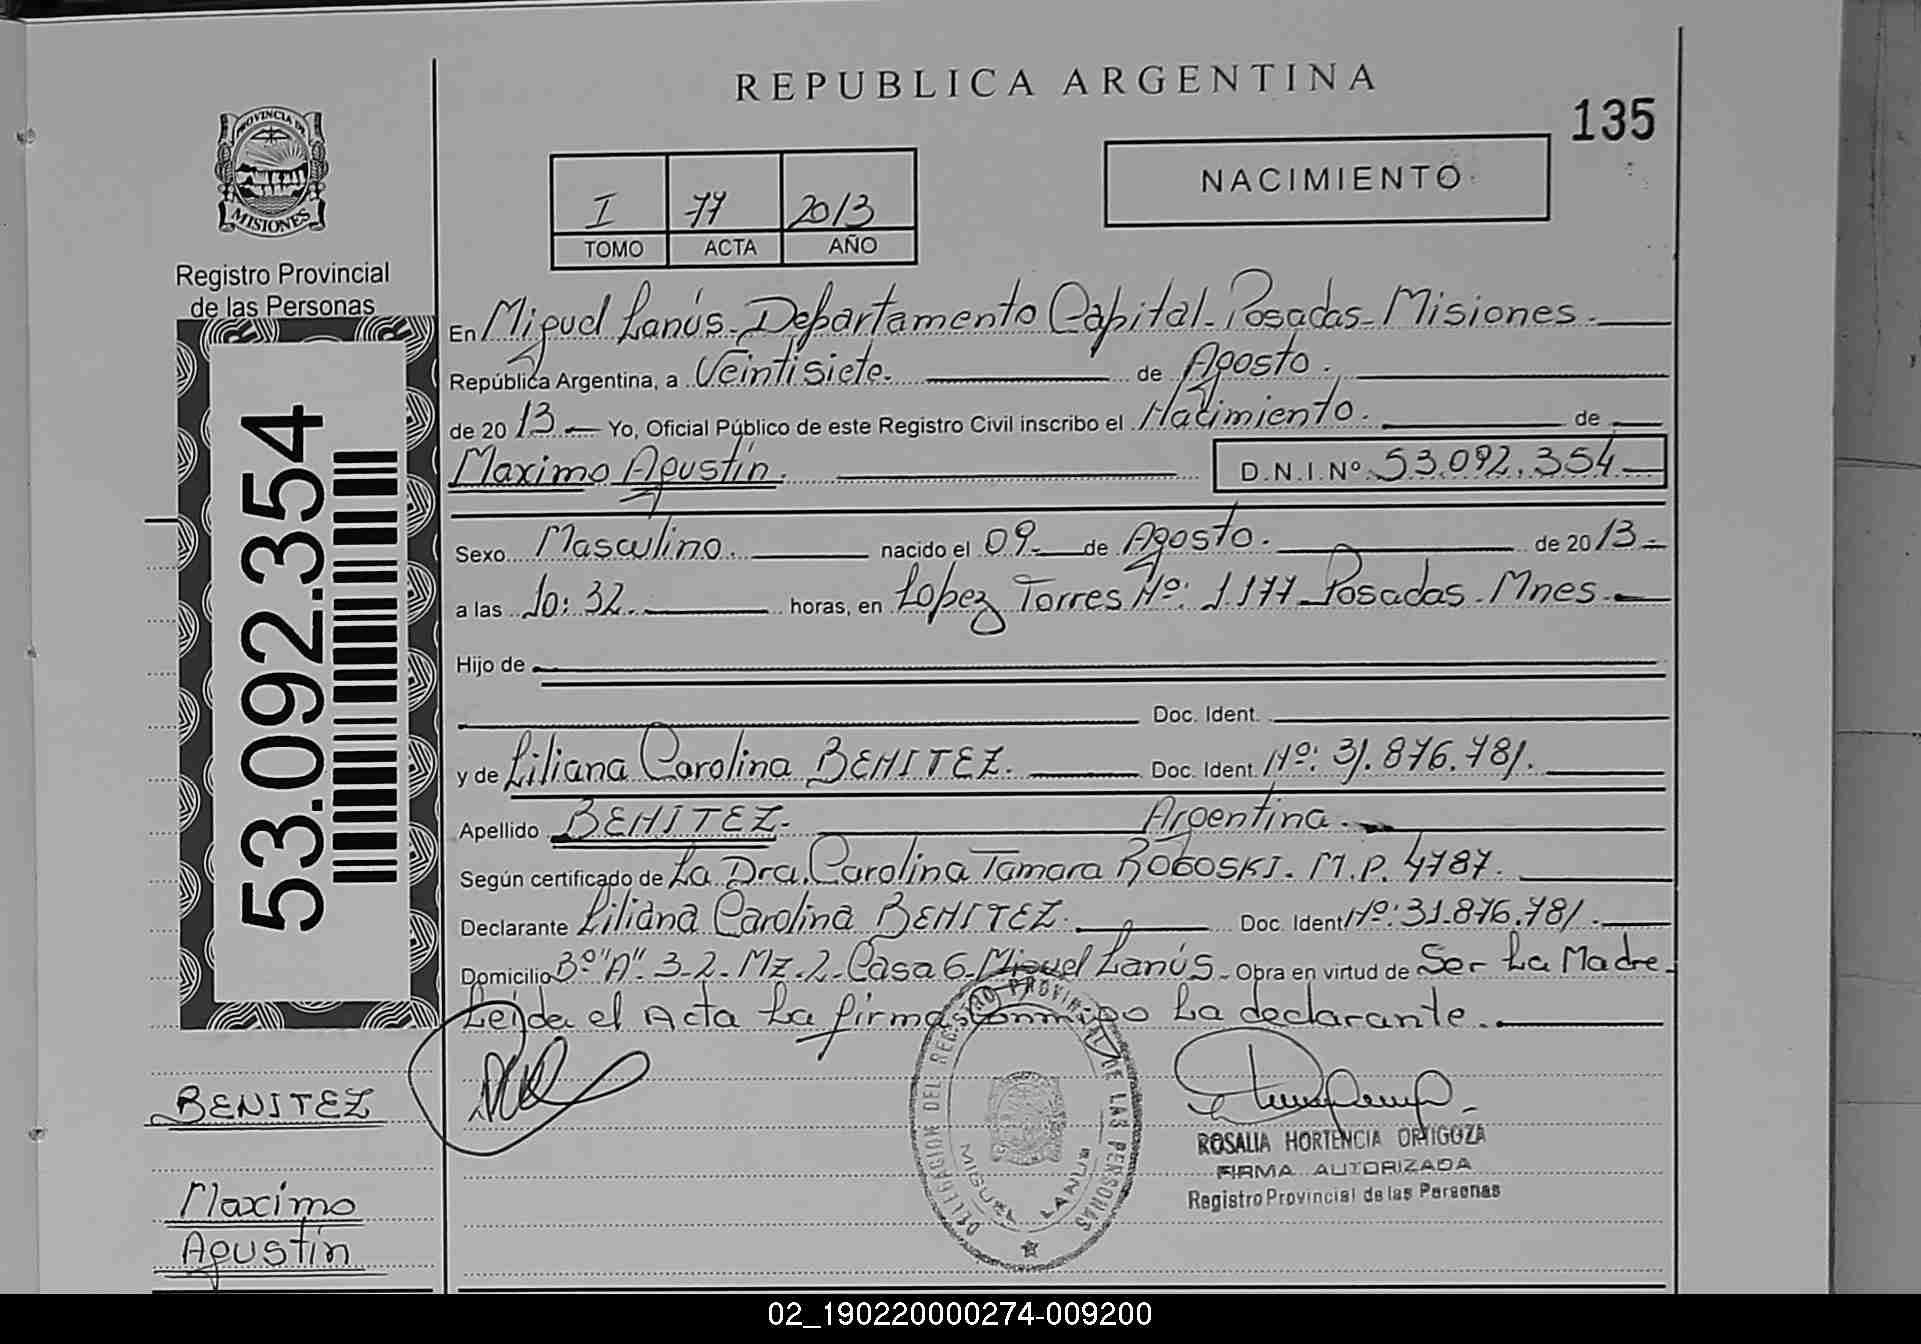 REPUBLICA ARGENTINA
135
PROVINCIA DE
MISIONES
Registro Provincial
de las Personas
I 77 2013
TOMO ACTA AÑO
NACIMIENTO
En Miguel Lanús - Departamento Capital - Posadas - Misiones.
República Argentina, a Veintisiete. de Agosto.
de 2013 Yo, Oficial Público de este Registro Civil inscribo el Nacimiento. de
Maximo Agustín. D.N.I.Nº 53.092.354
Sexo Masculino. nacido el 09 de Agosto. de 2013
a las 10:32. horas, en Lopez Torres Nº: 1177 - Posadas - Mnes.
Hijo de
Doc. Ident.
y de Liliana Carolina BENITEZ. Doc. Ident. Nº: 31.876.781.
Apellido BENITEZ. Argentina.
Según certificado de La Dra. Carolina Tamara ROGOSKI. M.P. 4787.
Declarante Liliana Carolina BENITEZ. Doc. Ident Nº: 31.876.781.
Domicilio Bº "A" 3-2-Mz.2-Casa 6-Miguel Lanús - Obra en virtud de Ser La Madre.
Leída el Acta La firma conmigo La declarante.
53.092.354
BENITEZ
Maximo
Agustín
DELEGACION DEL REGISTRO PROVINCIAL DE LAS PERSONAS
MIGUEL LANUS
ROSALIA HORTENCIA ORTIGOZA
FIRMA AUTORIZADA
Registro Provincial de las Personas
02_190220000274-009200